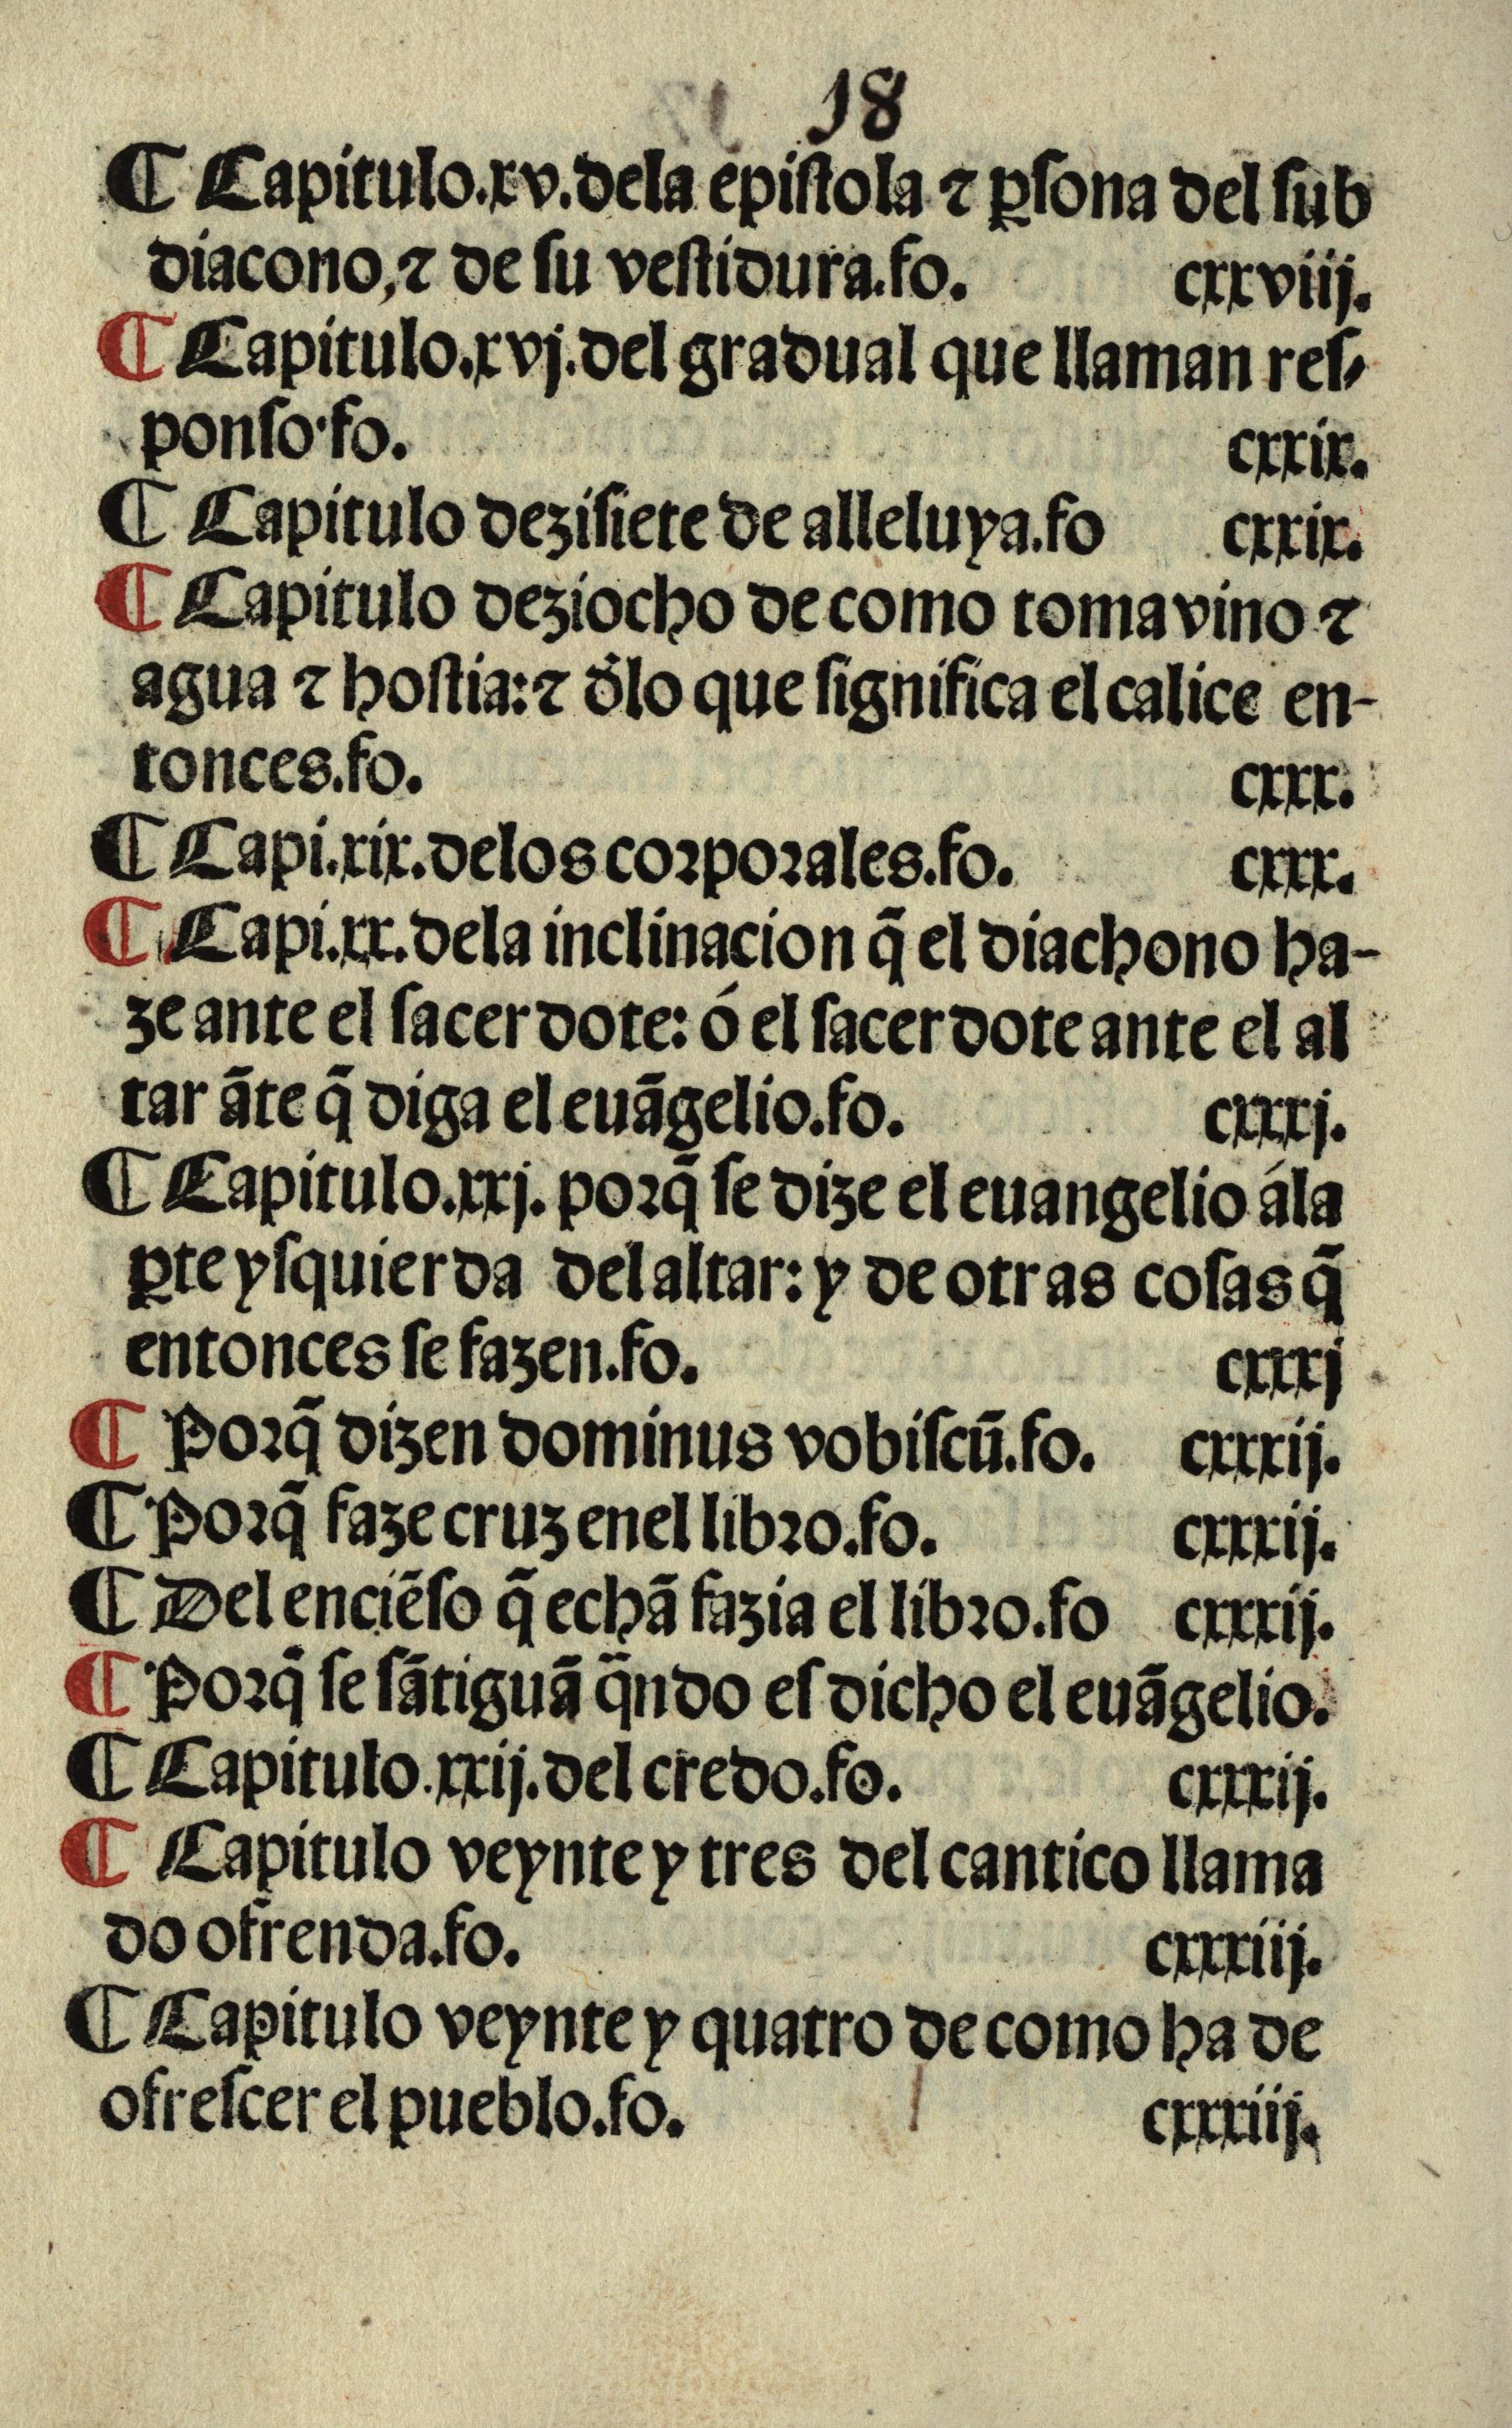 18
¶ Capitulo.xv.dela epiſtola ⁊ ꝑſona del ſub
diacono,⁊ de ſu veſtidura.fo. cxxviij.
¶ Capitulo.xvj.del gradual que llaman reſ⸗
ponſo·fo. cxxix.
¶ Capitulo deziſiete de alleluya.fo cxxix.
¶ Capitulo deziocho de como toma vino ⁊
agua ⁊ hoſtia:⁊ d̃lo que ſignifica el calice en-
tonces.fo. cxxx.
¶ Capi.xix.delos corporales.fo. cxxx.
¶ Capi.xx.dela inclinacion q̃ el diachono ha-
ze ante el ſacerdote: ó el ſacerdote ante el al
tar ãte q̃ diga el euãgelio.fo. cxxxj.
¶ Capitulo.xxj. porq̃ ſe dize el euangelio ála
ꝑte yſquierda del altar: y de otras coſas q̃
entonces ſe fazen.fo. cxxxj
¶ Porq̃ dizen dominus vobiſcũ.fo. cxxxij.
¶ Porq̃ faze cruz enel libro.fo. cxxxij.
¶ Del enciẽſo q̃ echã fazia el libro.fo cxxxij.
¶ Porq̃ ſe ſãtiguã q̃ndo eſ dicho el euãgelio.
¶ Capitulo.xxij.del credo.fo. cxxxij.
¶ Capitulo veynte y tres del cantico llama
do ofrenda.fo. cxxxiij.
¶ Capitulo veynte y quatro de como ha de
ofreſcer el pueblo.fo. cxxxiij.